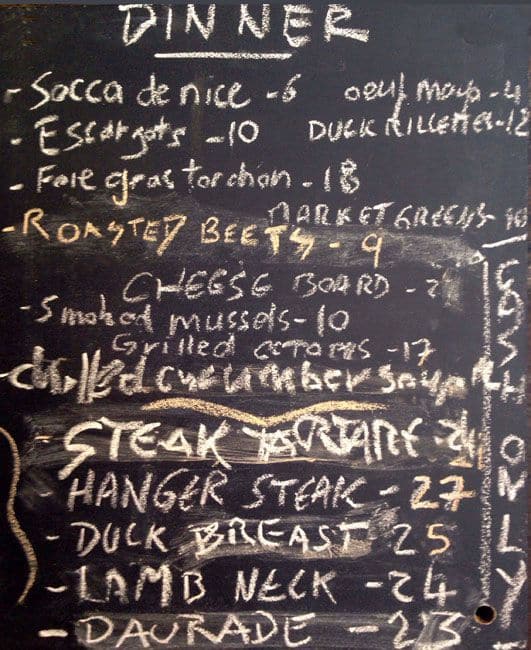 DINNER
- Socca de nice - 6
oeuf mayo - 4
- Escargots - 10
DUCK RILLETTES - 12
- Foie gras torchon - 18
MARKET GREENS 10
- ROASTED BEETS - 9
CHEESE BOARD -
- Smoked mussels - 10
Grilled octopus - 17
- chilled cucumber soup
- STEAK TARTARE - 24
- HANGER STEAK - 27
- DUCK BREAST 25
- LAMB NECK - 24
- DAURADE - 23
CASH ONLY